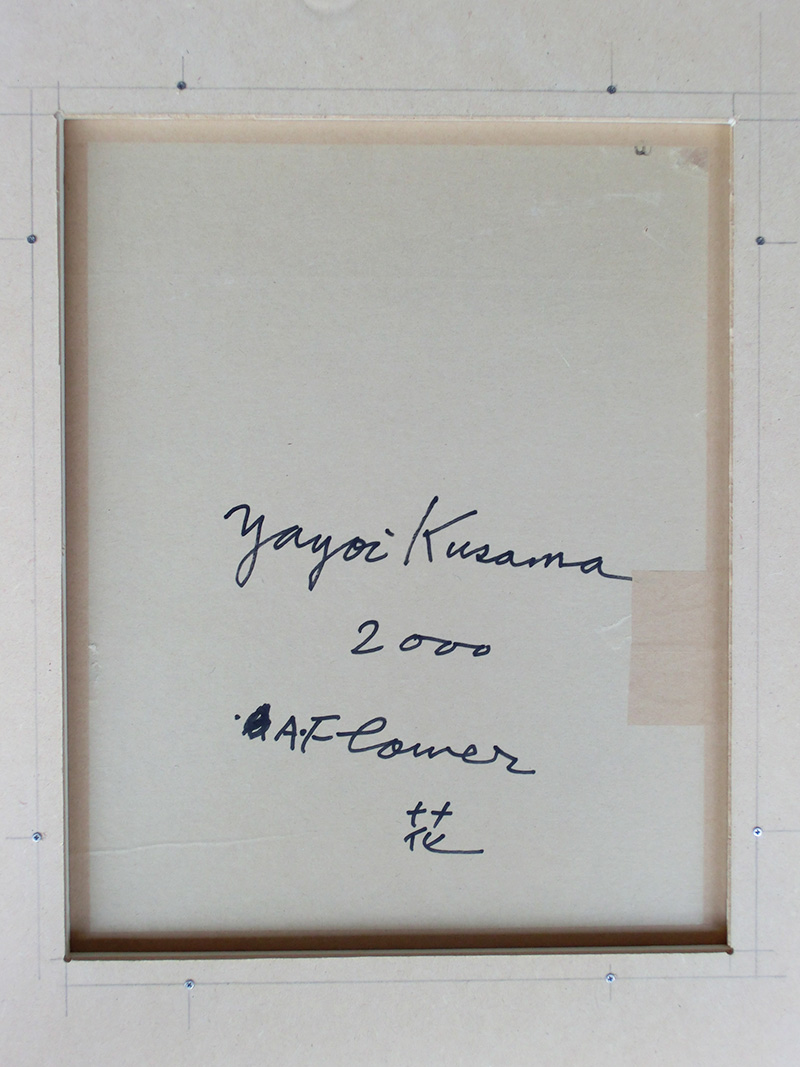 Yayoi Kusama
2000
A.Flower
花